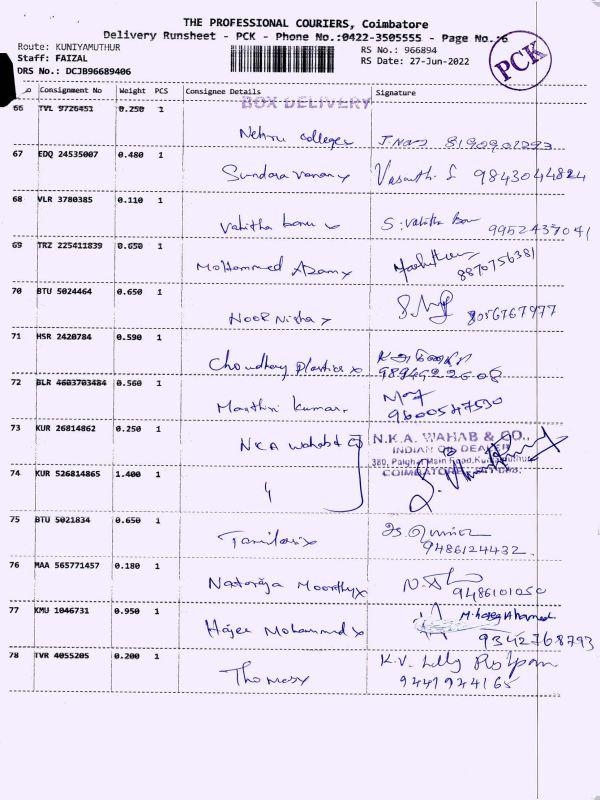 THE PROFESSIONAL COURIERS, Coimbatore
Delivery Runsheet - PCK - Phone No.:0422-3505555 - Page No.:6
Route: KUNIYAMUTHUR RS No.: 966894
Staff: FAIZAL RS Date: 27-Jun-2022
DRS No.: DCJB96689406
PCK
Consignment No Weight PCS Consignee Details Signature
BOX DELIVERY
66 TVL 9726451 0.250 1
Nehru college 8190902293
67 EDQ 24535007 0.480 1
Sundara raman Vasanth. S 9843044824
68 VLR 3780385 0.110 1
Vahitha banu S. Vahitha Ban 9952437041
69 TRZ 225411839 0.650 1
Mohammed Azam 8870756381
70 BTU 5024464 0.650 1
Noor Nisha 8056767977
71 HSR 2420784 0.590 1
Choudhary plastics
72 BLR 4603703484 0.560 1
kumar. 9600547530
73 KUR 26814862 0.250 1
NKA Wahab & Co N.K.A. WAHAB & CO.,
INDIAN OIL DEALER
380, Palghat Main Road, Kuniyamuthur
COIMBATORE
74 KUR 526814865 1.400 1
75 BTU 5021834 0.650 1
Tamilarasi 9486124432.
76 MAA 565771457 0.180 1
Nataraja Moorthy 9486101050
77 KMU 1046731 0.950 1
Hajee Mohammed 9342768793
78 TVR 4055205 0.200 1
Thomas K.V. Lilly
9441924165